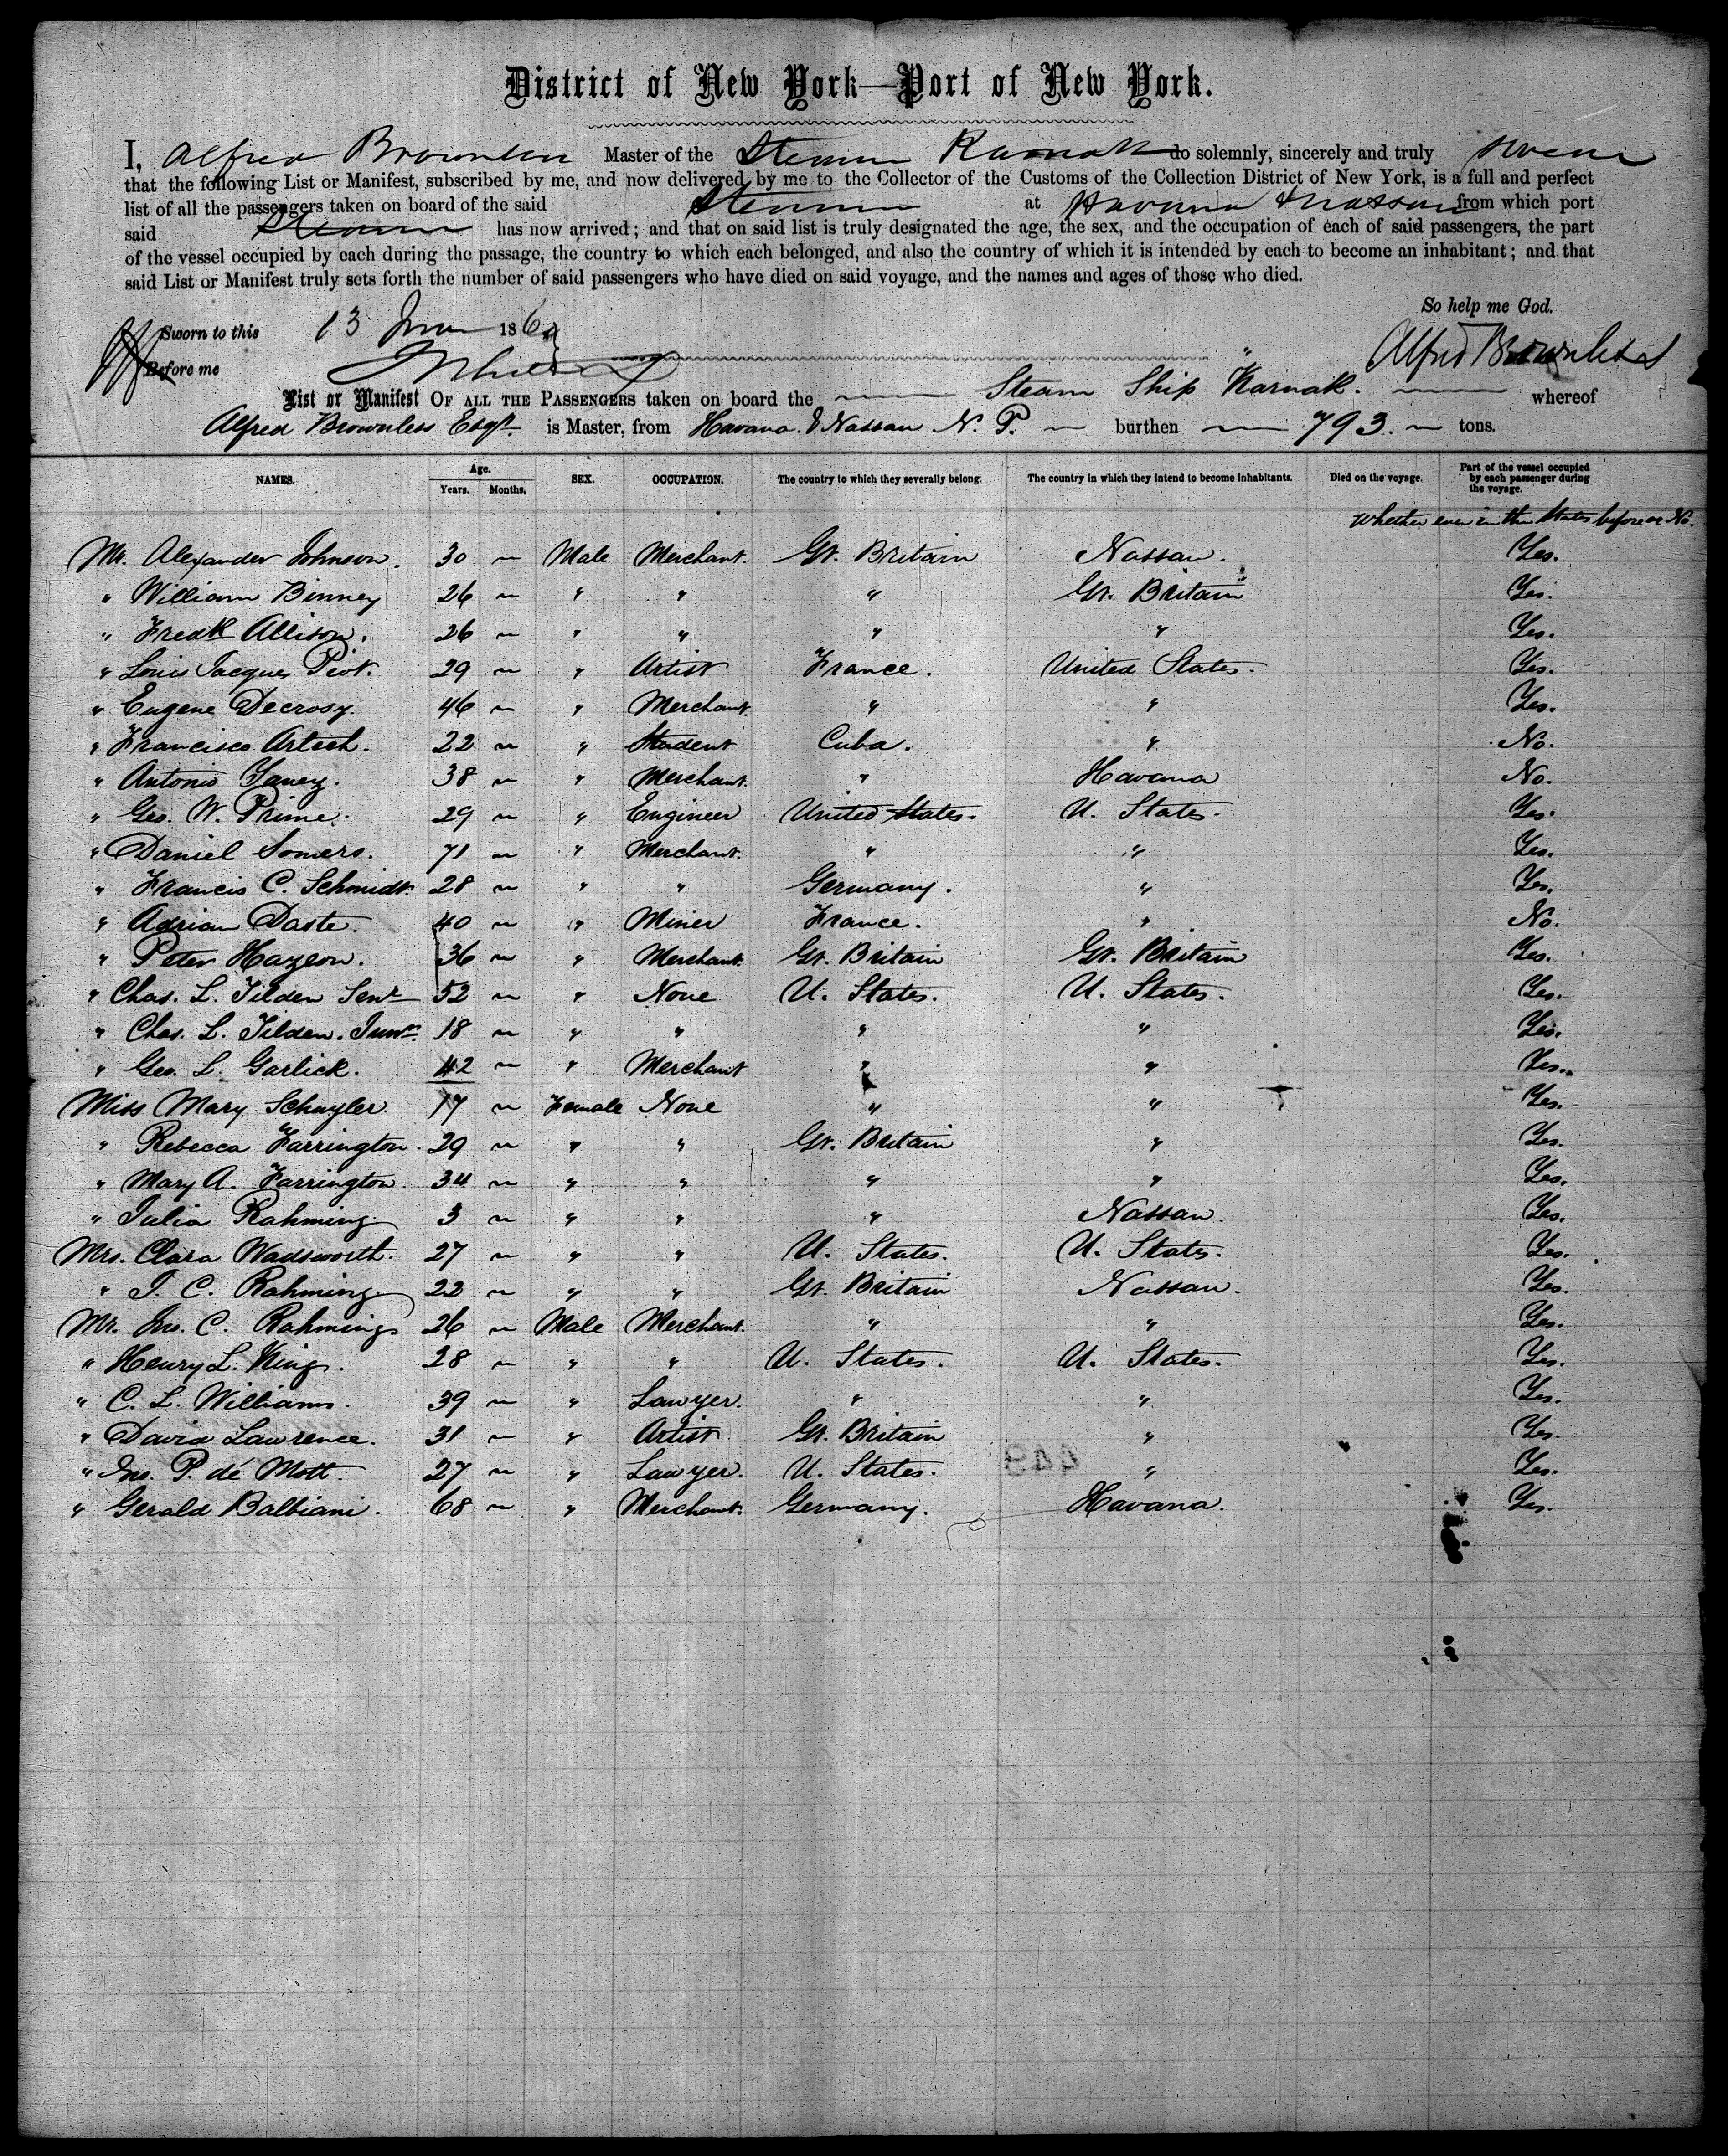 District of New York—Port of New York.
I, Alfred Brownless Master of the Steamer Karnak do solemnly, sincerely and truly swear
that the following List or Manifest, subscribed by me, and now delivered by me to the Collector of the Customs of the Collection District of New York, is a full and perfect
list of all the passengers taken on board of the said Steamer at Havana & Nassau from which port
said Steamer has now arrived; and that on said list is truly designated the age, the sex, and the occupation of each of said passengers, the part
of the vessel occupied by each during the passage, the country to which each belonged, and also the country of which it is intended by each to become an inhabitant; and that
said List or Manifest truly sets forth the number of said passengers who have died on said voyage, and the names and ages of those who died.
So help me God.
Sworn to this 13 June 186
Alfred Brownless
Before me
List or Manifest OF ALL THE PASSENGERS taken on board the Steam Ship Karnak. whereof
Alfred Brownless Esqr. is Master, from Havana & Nassau N. P. burthen 793. tons.
NAMES. Age. Years. Months. SEX. OCCUPATION. The country to which they severally belong. The country in which they intend to become inhabitants. Died on the voyage. Part of the vessel occupied by each passenger during the voyage.
Whether ever in the States before or No.
Mr. Alexander Johnson. 30 ~ Male Merchant. Gt. Britain Nassau. Yes.
" William Binney 26 ~ " " " Gt. Britain Yes.
" Fredk Allison. 26 ~ " " " " Yes.
" Louis Jacques Piot. 29 ~ " Artist France. United States. Yes.
" Eugene Decrosy. 46 ~ " Merchant. " " Yes.
" Francisco Artech. 22 ~ " Student Cuba. " No.
" Antonio Yanez. 38 ~ " Merchant. " Havana No.
" Geo. W. Prime. 29 ~ " Engineer United States. U. States. Yes.
" Daniel Somers. 71 ~ " Merchant. " " Yes.
" Francis C. Schmidt. 28 ~ " " Germany. " Yes.
" Adrian Daste. 40 ~ " Miner France. " No.
" Peter Hazeon. 36 ~ " Merchant. Gt. Britain Gt. Britain Yes.
" Chas. L. Tilden Senr 52 ~ " None U. States. U. States. Yes.
" Chas. L. Tilden. Junr. 18 ~ " " " " Yes.
" Geo. L. Garlick. 42 ~ " Merchant " " Yes.
Miss Mary Schuyler. 17 ~ Female None " " Yes.
" Rebecca Farrington. 29 ~ " " Gt. Britain " Yes.
" Mary A. Farrington. 34 ~ " " " " Yes.
" Julia Rahming 3 ~ " " " Nassau. Yes.
Mrs. Clara Wadsworth. 27 ~ " " U. States. U. States. Yes.
" J. C. Rahming 22 ~ " " Gt. Britain Nassau. Yes.
Mr. Jno. C. Rahming 26 ~ Male Merchant. " " Yes.
" Henry L. King. 28 ~ " " U. States. U. States. Yes.
" C. L. Williams. 39 ~ " Lawyer. " " Yes.
" David Lawrence. 31 ~ " Artist Gt. Britain " Yes.
" Jno. P. dé Mott. 27 ~ " Lawyer. U. States. " Yes.
" Gerald Balbiani. 68 ~ " Merchant. Germany. Havana. Yes.
449